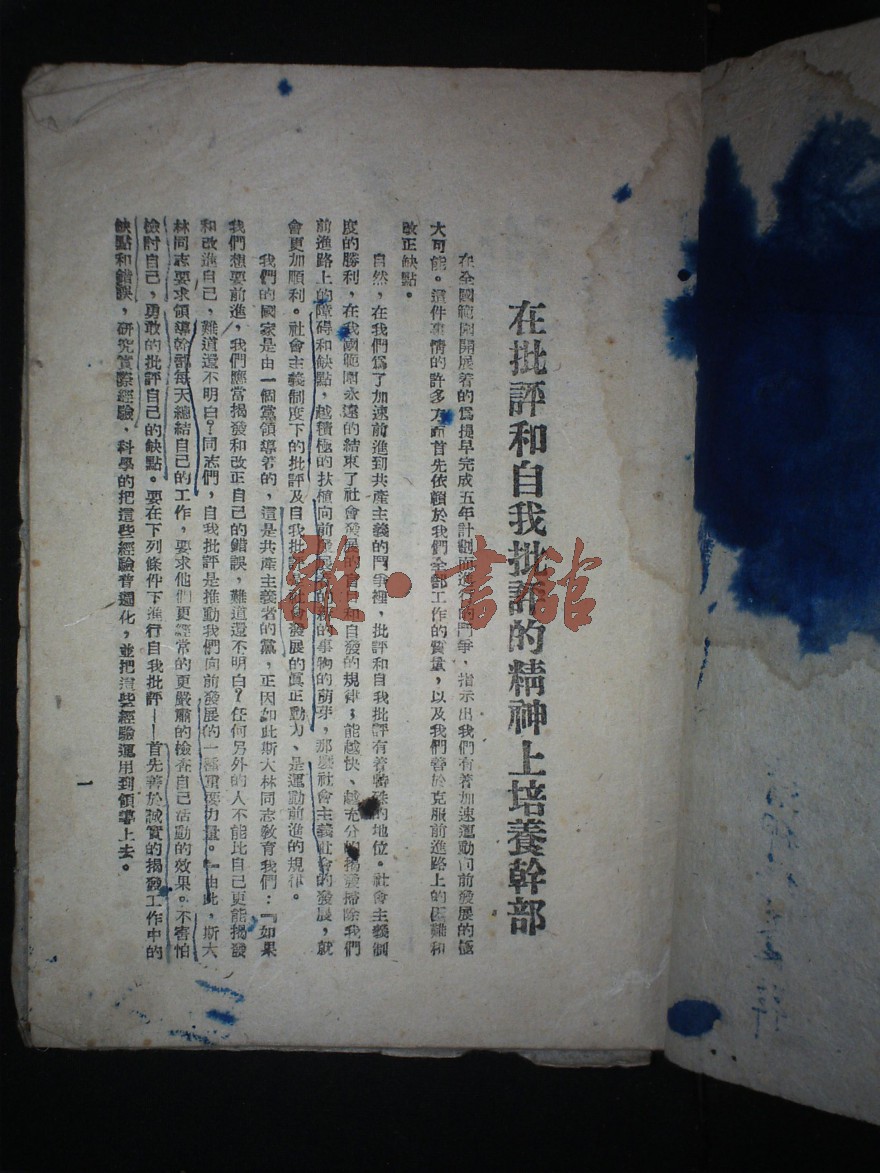 在批評和自我批評的精神上培養幹部
在全國範圍開展着的爲提早完成五年計劃而進行的鬥爭，指示出我們有着加速運動向前發展的極
大可能。這件事情的許多方面首先依賴於我們全部工作的質量，以及我們善於克服前進路上的困難和
改正缺點。
自然，在我們爲了加速前進到共產主義的鬥爭裡，批評和自我批評有着特殊的地位。社會主義制
度的勝利，在我國範圍永遠的結束了社會發展的盲目和自發的規律；能越快、越充分的揭發掃除我們
前進路上的障碍和缺點，越積極的扶植向前發展的新的事物的萌芽，那麽社會主義社會的發展，就
會更加順利。社會主義制度下的批評及自我批評是社會發展的眞正動力、是運動前進的規律。
我們的國家是由一個黨領導着的，這是共產主義者的黨，正因如此斯大林同志教育我們：『如果
我們想要前進，我們應當揭發和改正自己的錯誤，難道還不明白？任何另外的人不能比自己更能揭發
和改進自己，難道還不明白？同志們，自我批評是推動我們向前發展的一種重要力量。』由此，斯大
林同志要求領導幹部每天總結自己的工作，要求他們更經常的更嚴肅的檢查自己活動的效果。不害怕
檢討自己，勇敢的批評自己的缺點。要在下列條件下進行自我批評——首先善於誠實的揭發工作中的
缺點和錯誤，研究實際經驗，科學的把這些經驗普遍化，並把這些經驗運用到領導上去。
一
雜·書舘